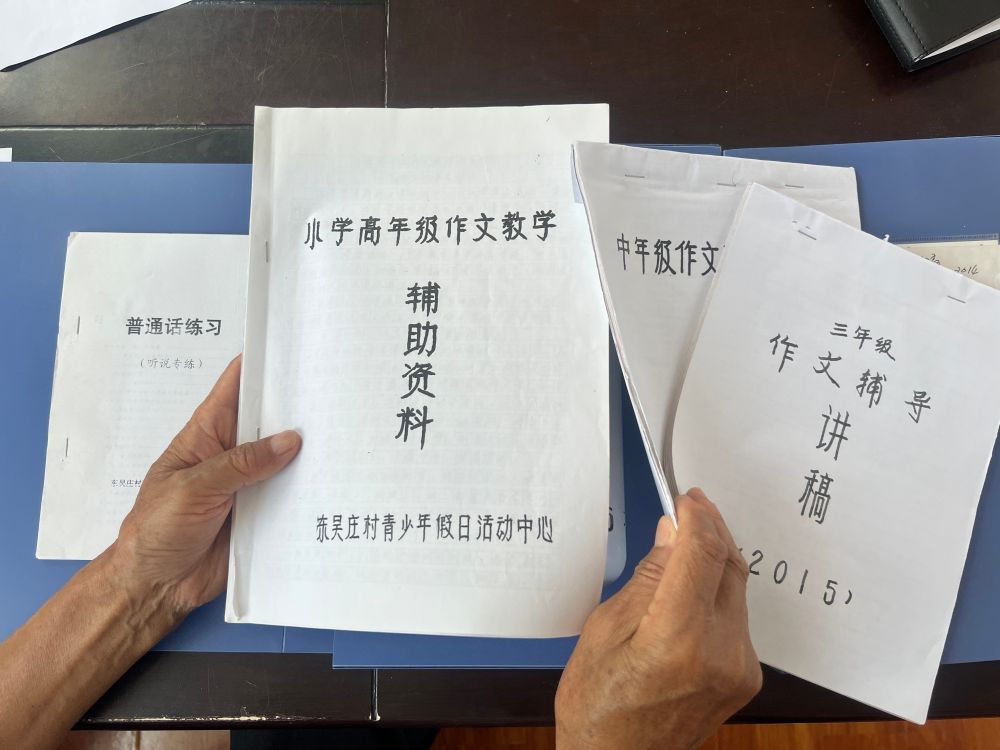 普通话练习
（听说专练）
东吴庄村
小学高年级作文教学
辅助资料
东吴庄村青少年假日活动中心
中年级作文
三年级
作文辅导
讲稿
(2015)
2014